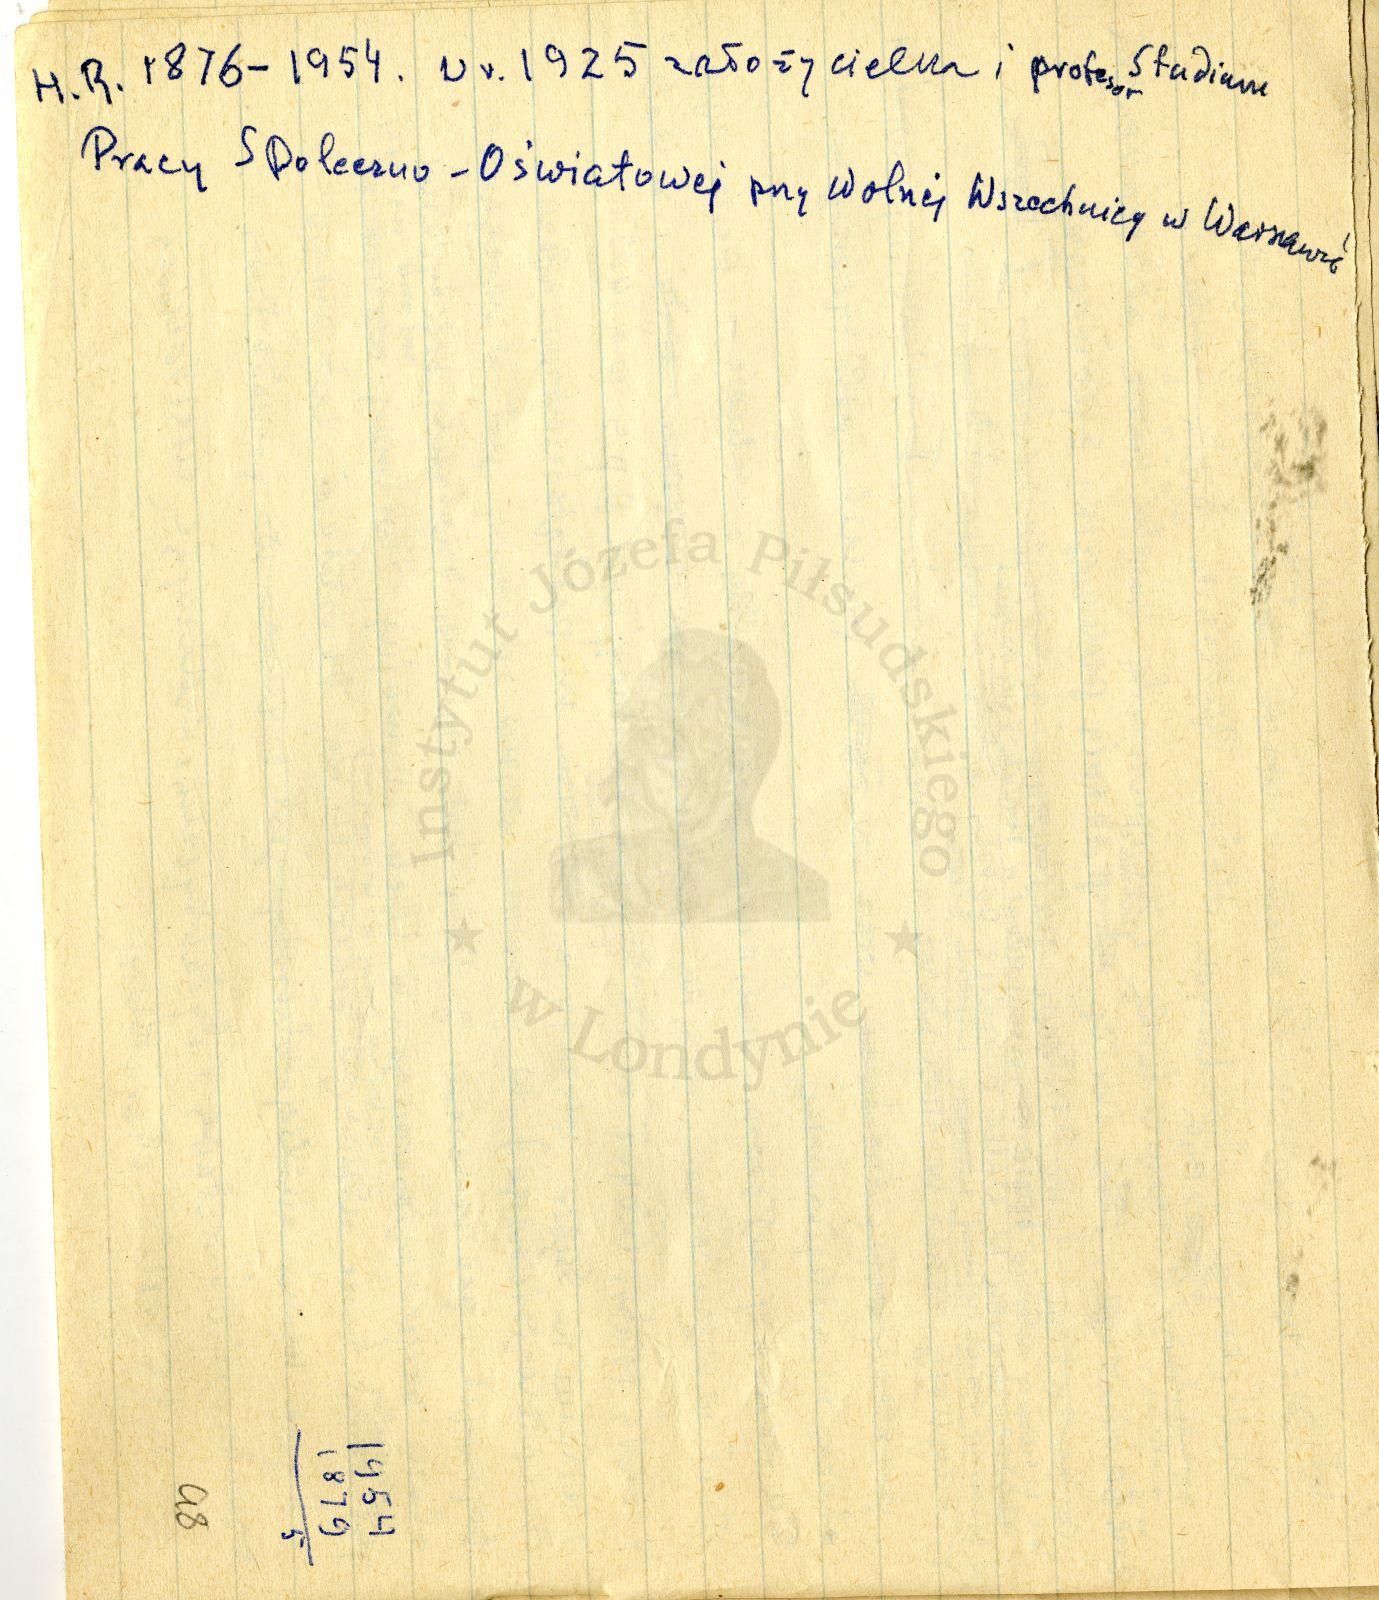 H.R. 1876-1954. W r. 1925 założycielka i profesor Studium
Pracy Społeczno-Oświatowej przy Wolnej Wszechnicy w Warszawie
Instytut Józefa Piłsudskiego
w Londynie
1954
1879
5